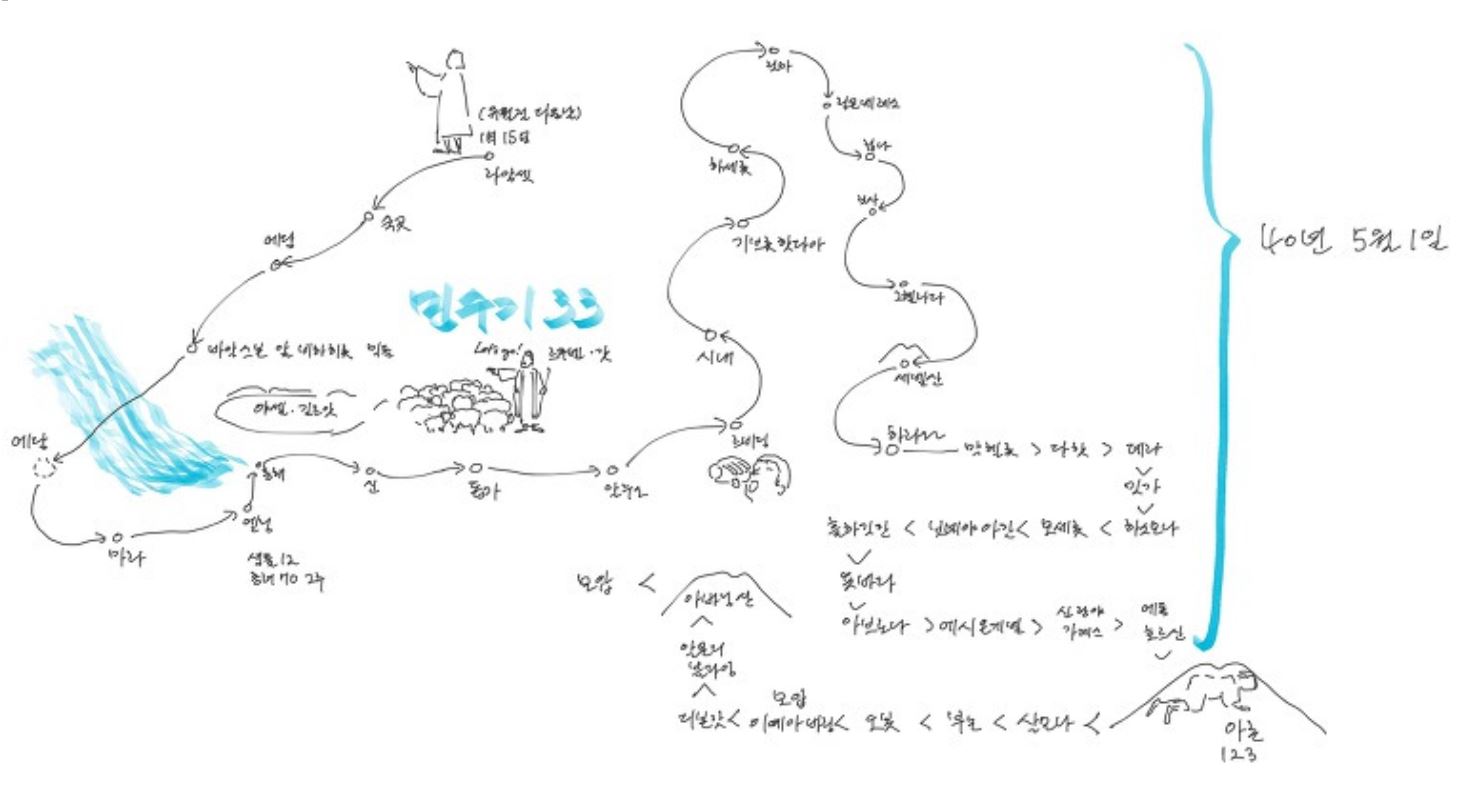 (유월절 다음날)
1월 15일
라암셋
숙곳
에담
바알스본 앞 비하히롯 믹돌
에담
마라
엘림
샘물 12
종려 70 그루
홍해
신
돕가
알루스
르비딤
시내
기브롯핫다아
하세롯
릿마
림몬베레스
립나
릿사
그헬라다
세벨산
하라다
막헬롯 > 다핫 > 데라
밋가
하스모나
> 모세롯 > 브네야아간 > 홀하깃갓
욧바다
아브로나 > 에시온게벨 >
신광야
가데스 >
에돔
호르산
아론
123
< 살모나 < 부논 < 오봇 <
모압
이예아바림
< 디본갓
알몬디
블라다임
아바림산
< 모압
민수기 33
Let's go!
르우벤·갓
야셀·길르앗
40년 5월 1일